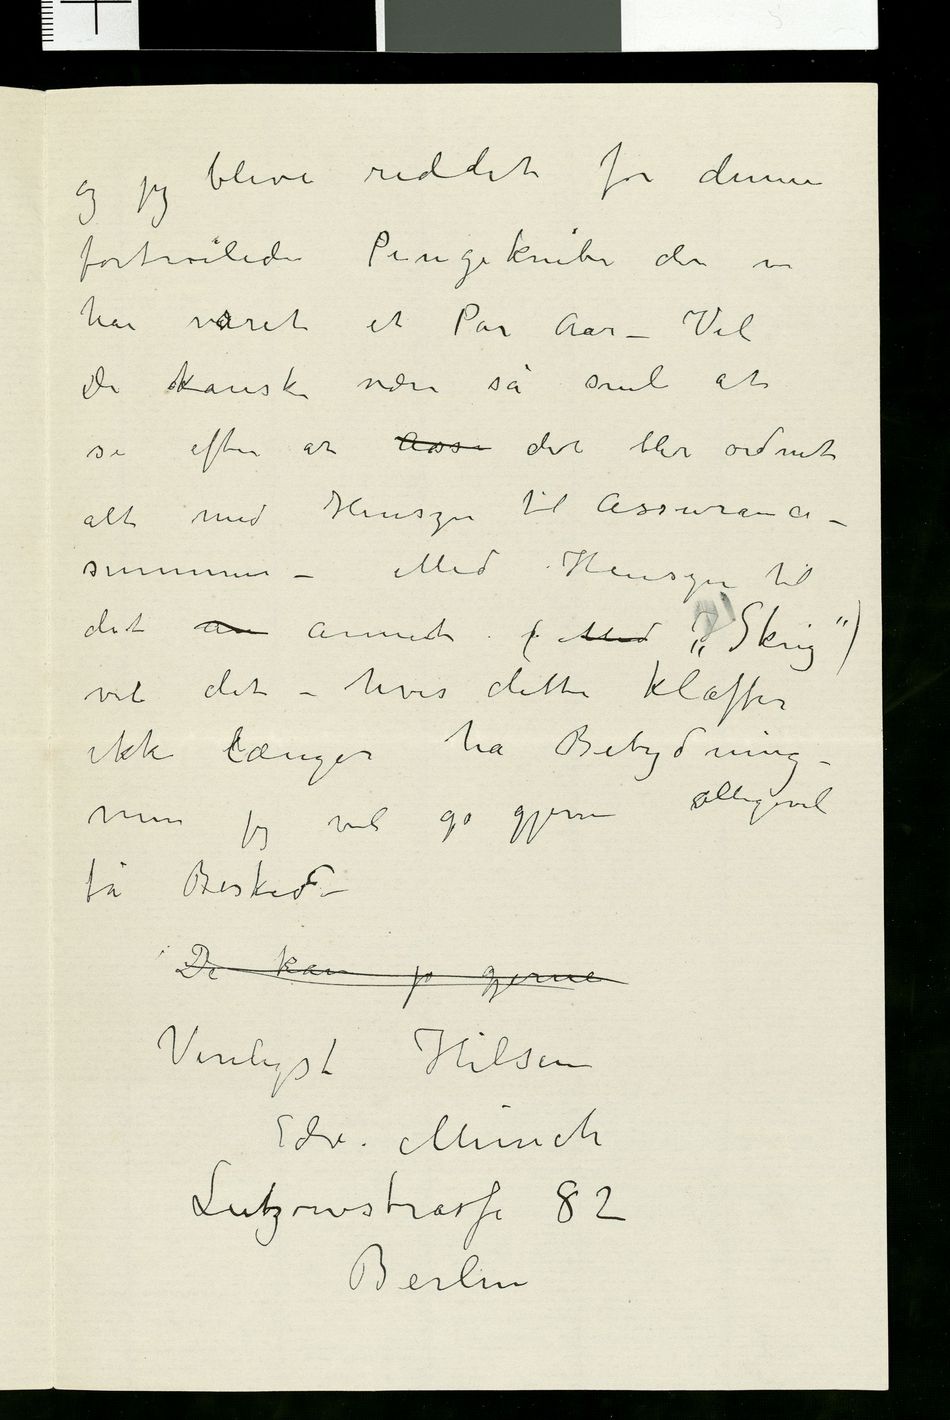 og jeg blive reddet for denne
fortvilede Pengeknibe der nu
har været et Par Aar – Vil
De kanske være så snil at
se efter at Ass det blir ordnet
alt med Hensyn til Assurance-
summen – Med Hensyn til
det an annet (Med „Skrig“)
vil det – hvis dette klaffer
ikke længer ha Betydning –
men jeg vil jo gjerne alligevel
få Besked –
De kan jo gjerne
Venligst Hilsen
Edv. Munch
Lutzowstrasse 82
Berlin